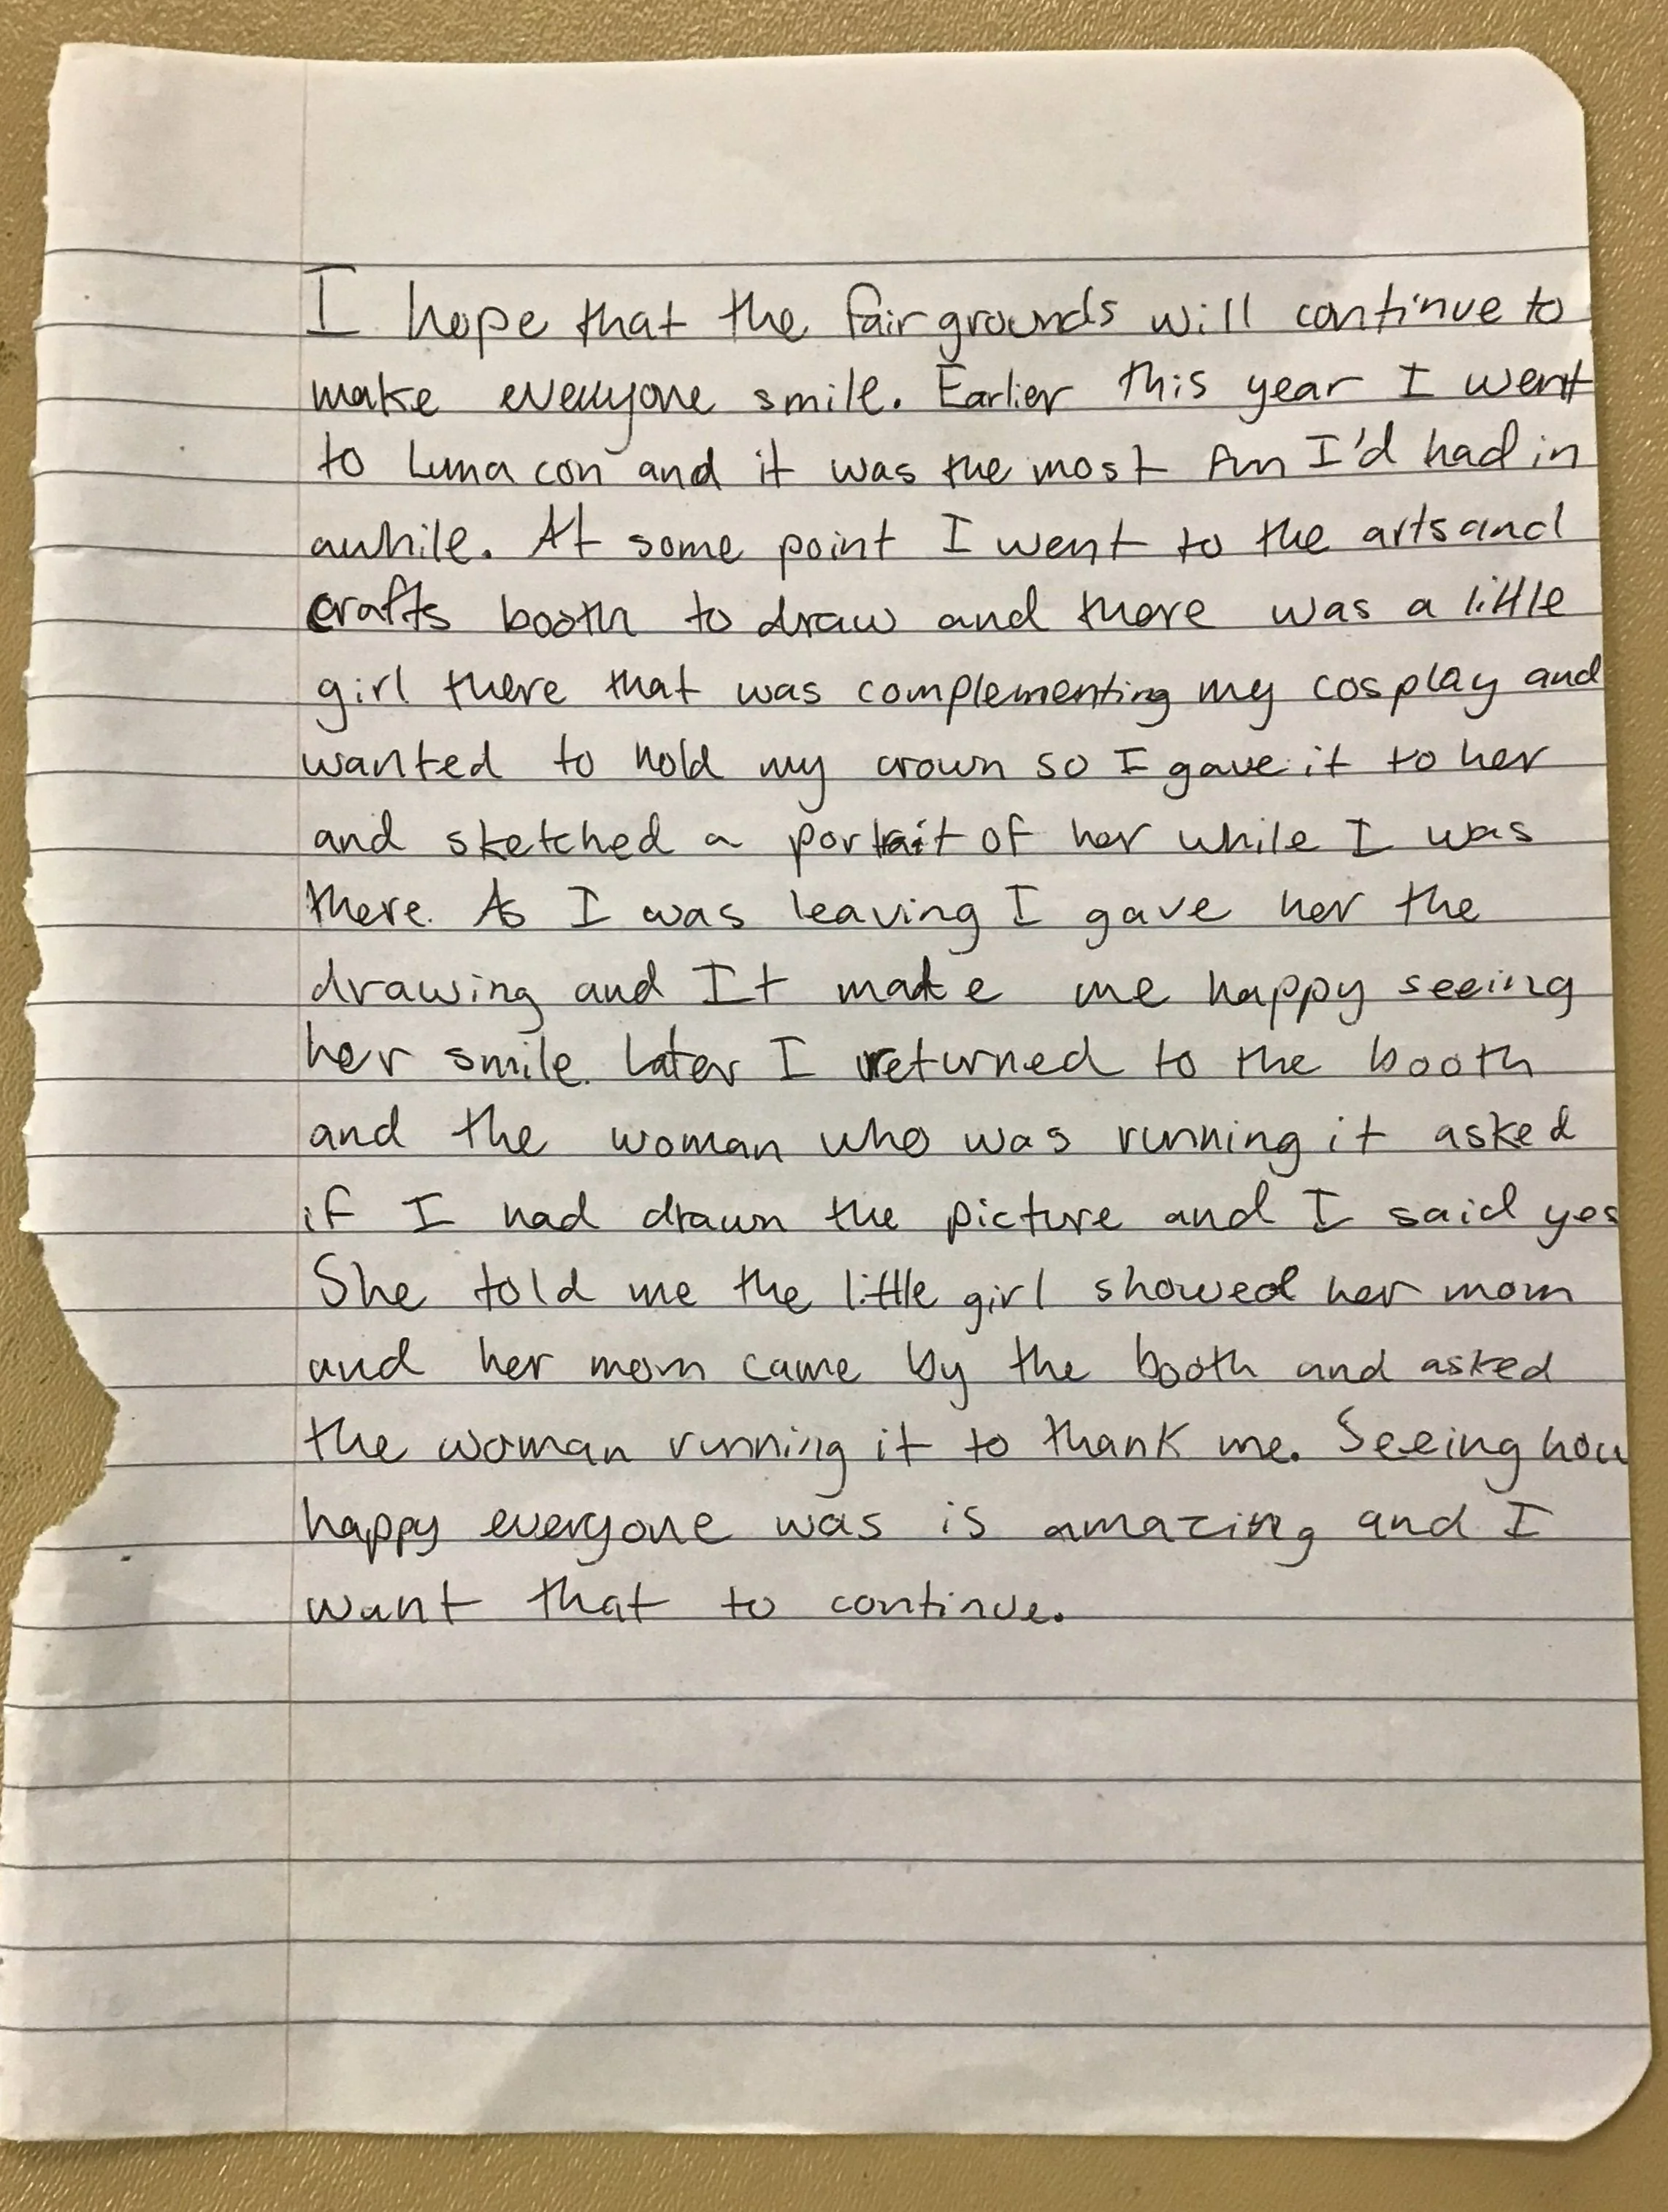 I hope that the fairgrounds will continue to
make everyone smile. Earlier this year I went
to Luna con and it was the most fun I'd had in
awhile. At some point I went to the arts and
crafts booth to draw and there was a little
girl there that was complementing my cosplay and
wanted to hold my crown so I gave it to her
and sketched a portrait of her while I was
there. As I was leaving I gave her the
drawing and It made me happy seeing
her smile. Later I returned to the booth
and the woman who was running it asked
if I had drawn the picture and I said yes
She told me the little girl showed her mom
and her mom came by the booth and asked
the woman running it to thank me. Seeing how
happy everyone was is amazing and I
want that to continue.